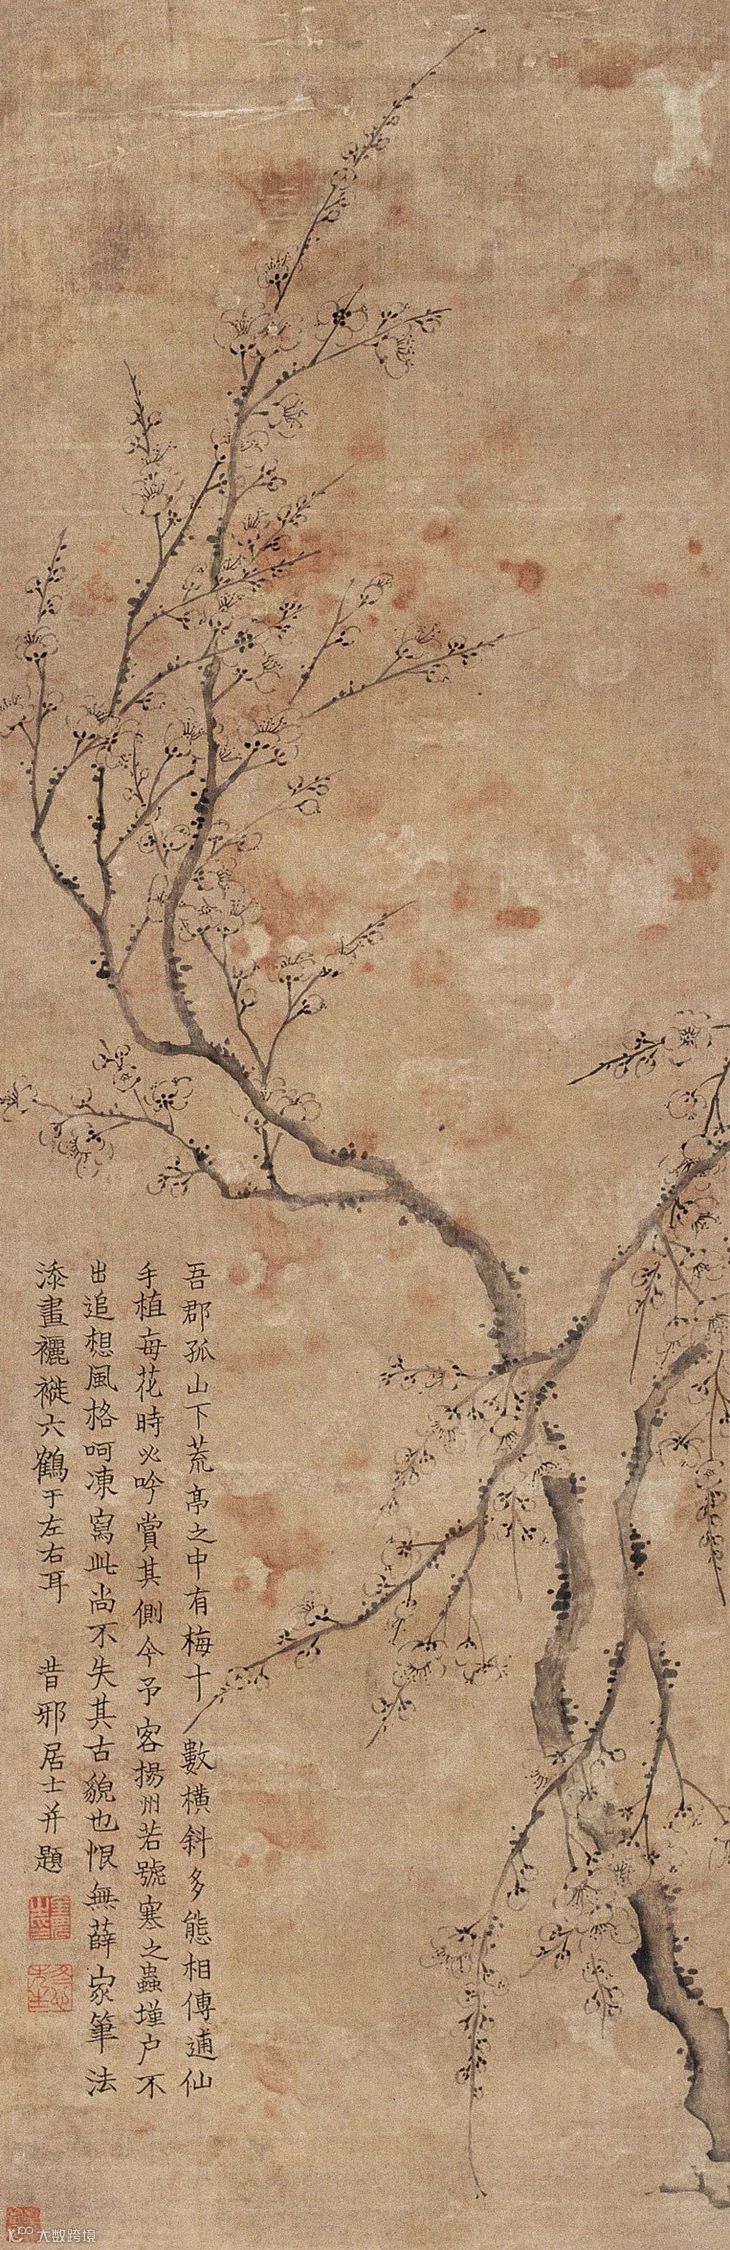 吾郡孤山下荒亭之中有梅十數橫斜多態相傳逋仙
手植每花時必吟賞其側今予客揚州若號寒之蟲墐户不
出追想風格呵凍寫此尚不失其古貌也恨無薛家筆法
添畫襹褷六鶴于左右耳 昔邪居士并題
大数跨境